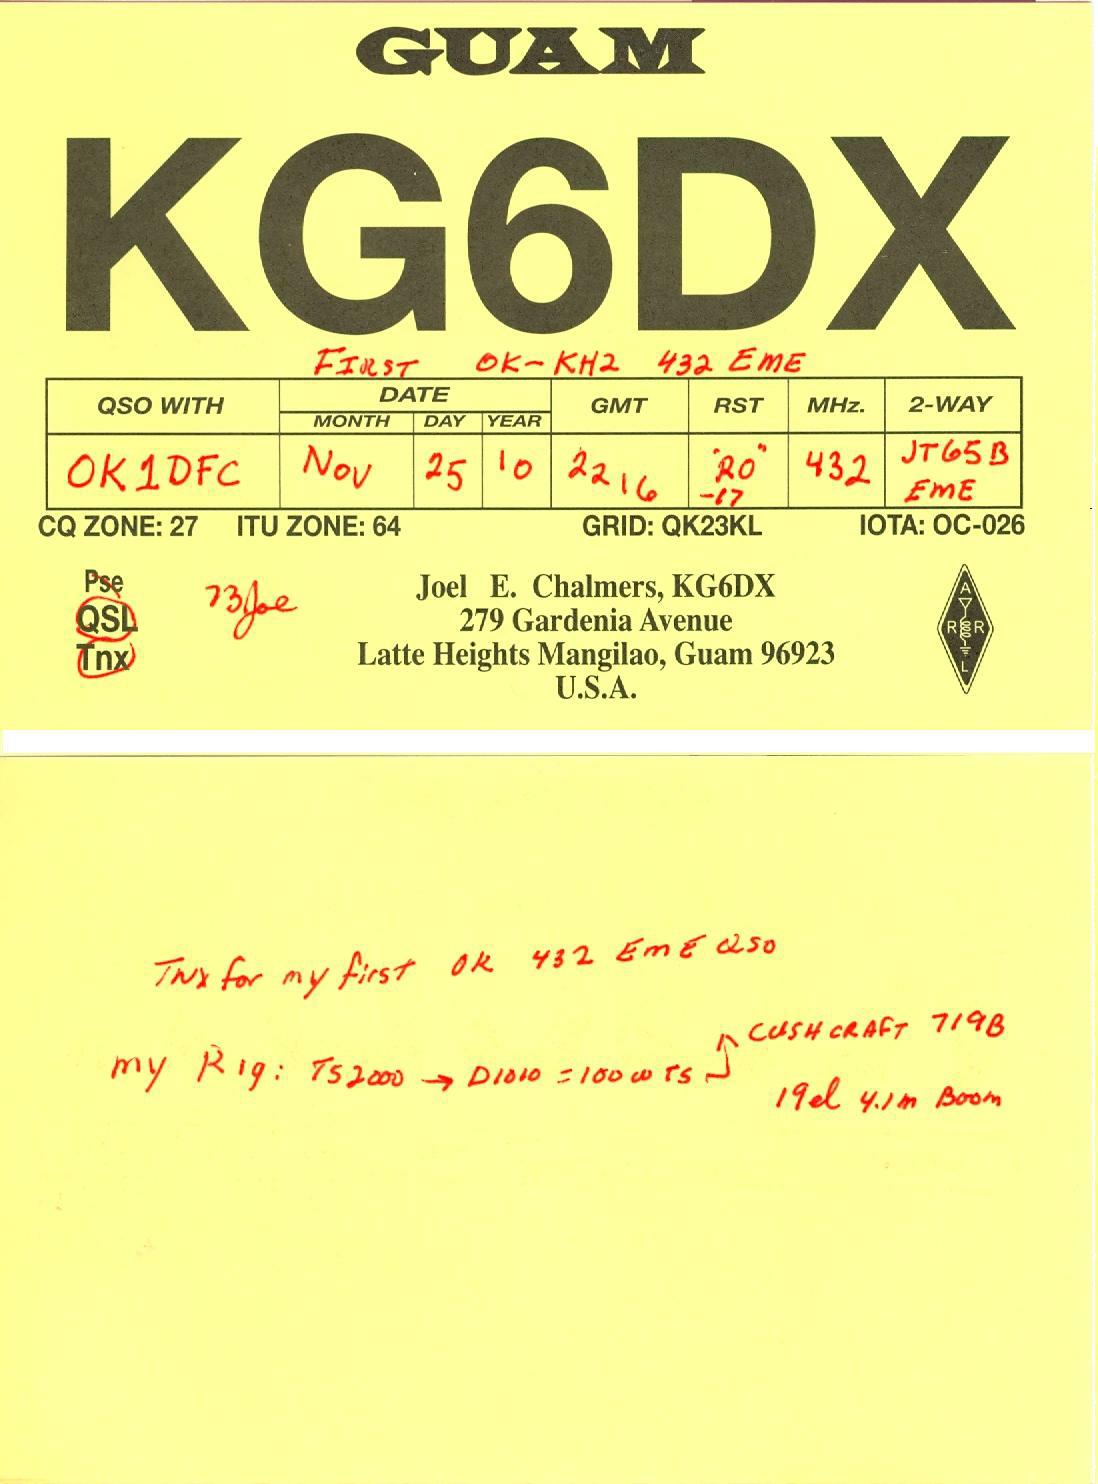 GUAM
KG6DX
FIRST OK-KH2 432 EME
QSO WITH DATE GMT RST MHz. 2-WAY
MONTH DAY YEAR
OK1DFC Nov 25 10 2216 "RO" -17 432 JT65B EME
CQ ZONE: 27 ITU ZONE: 64 GRID: QK23KL IOTA: OC-026
Pse
QSL
Tnx
73 Joe
Joel E. Chalmers, KG6DX
279 Gardenia Avenue
Latte Heights Mangilao, Guam 96923
U.S.A.
A
R R
L
TNX for my first OK 432 EME QSO
my Rig: TS2000 → D1010 = 100 W TS CUSHCRAFT 719B
19el 4.1m Boom